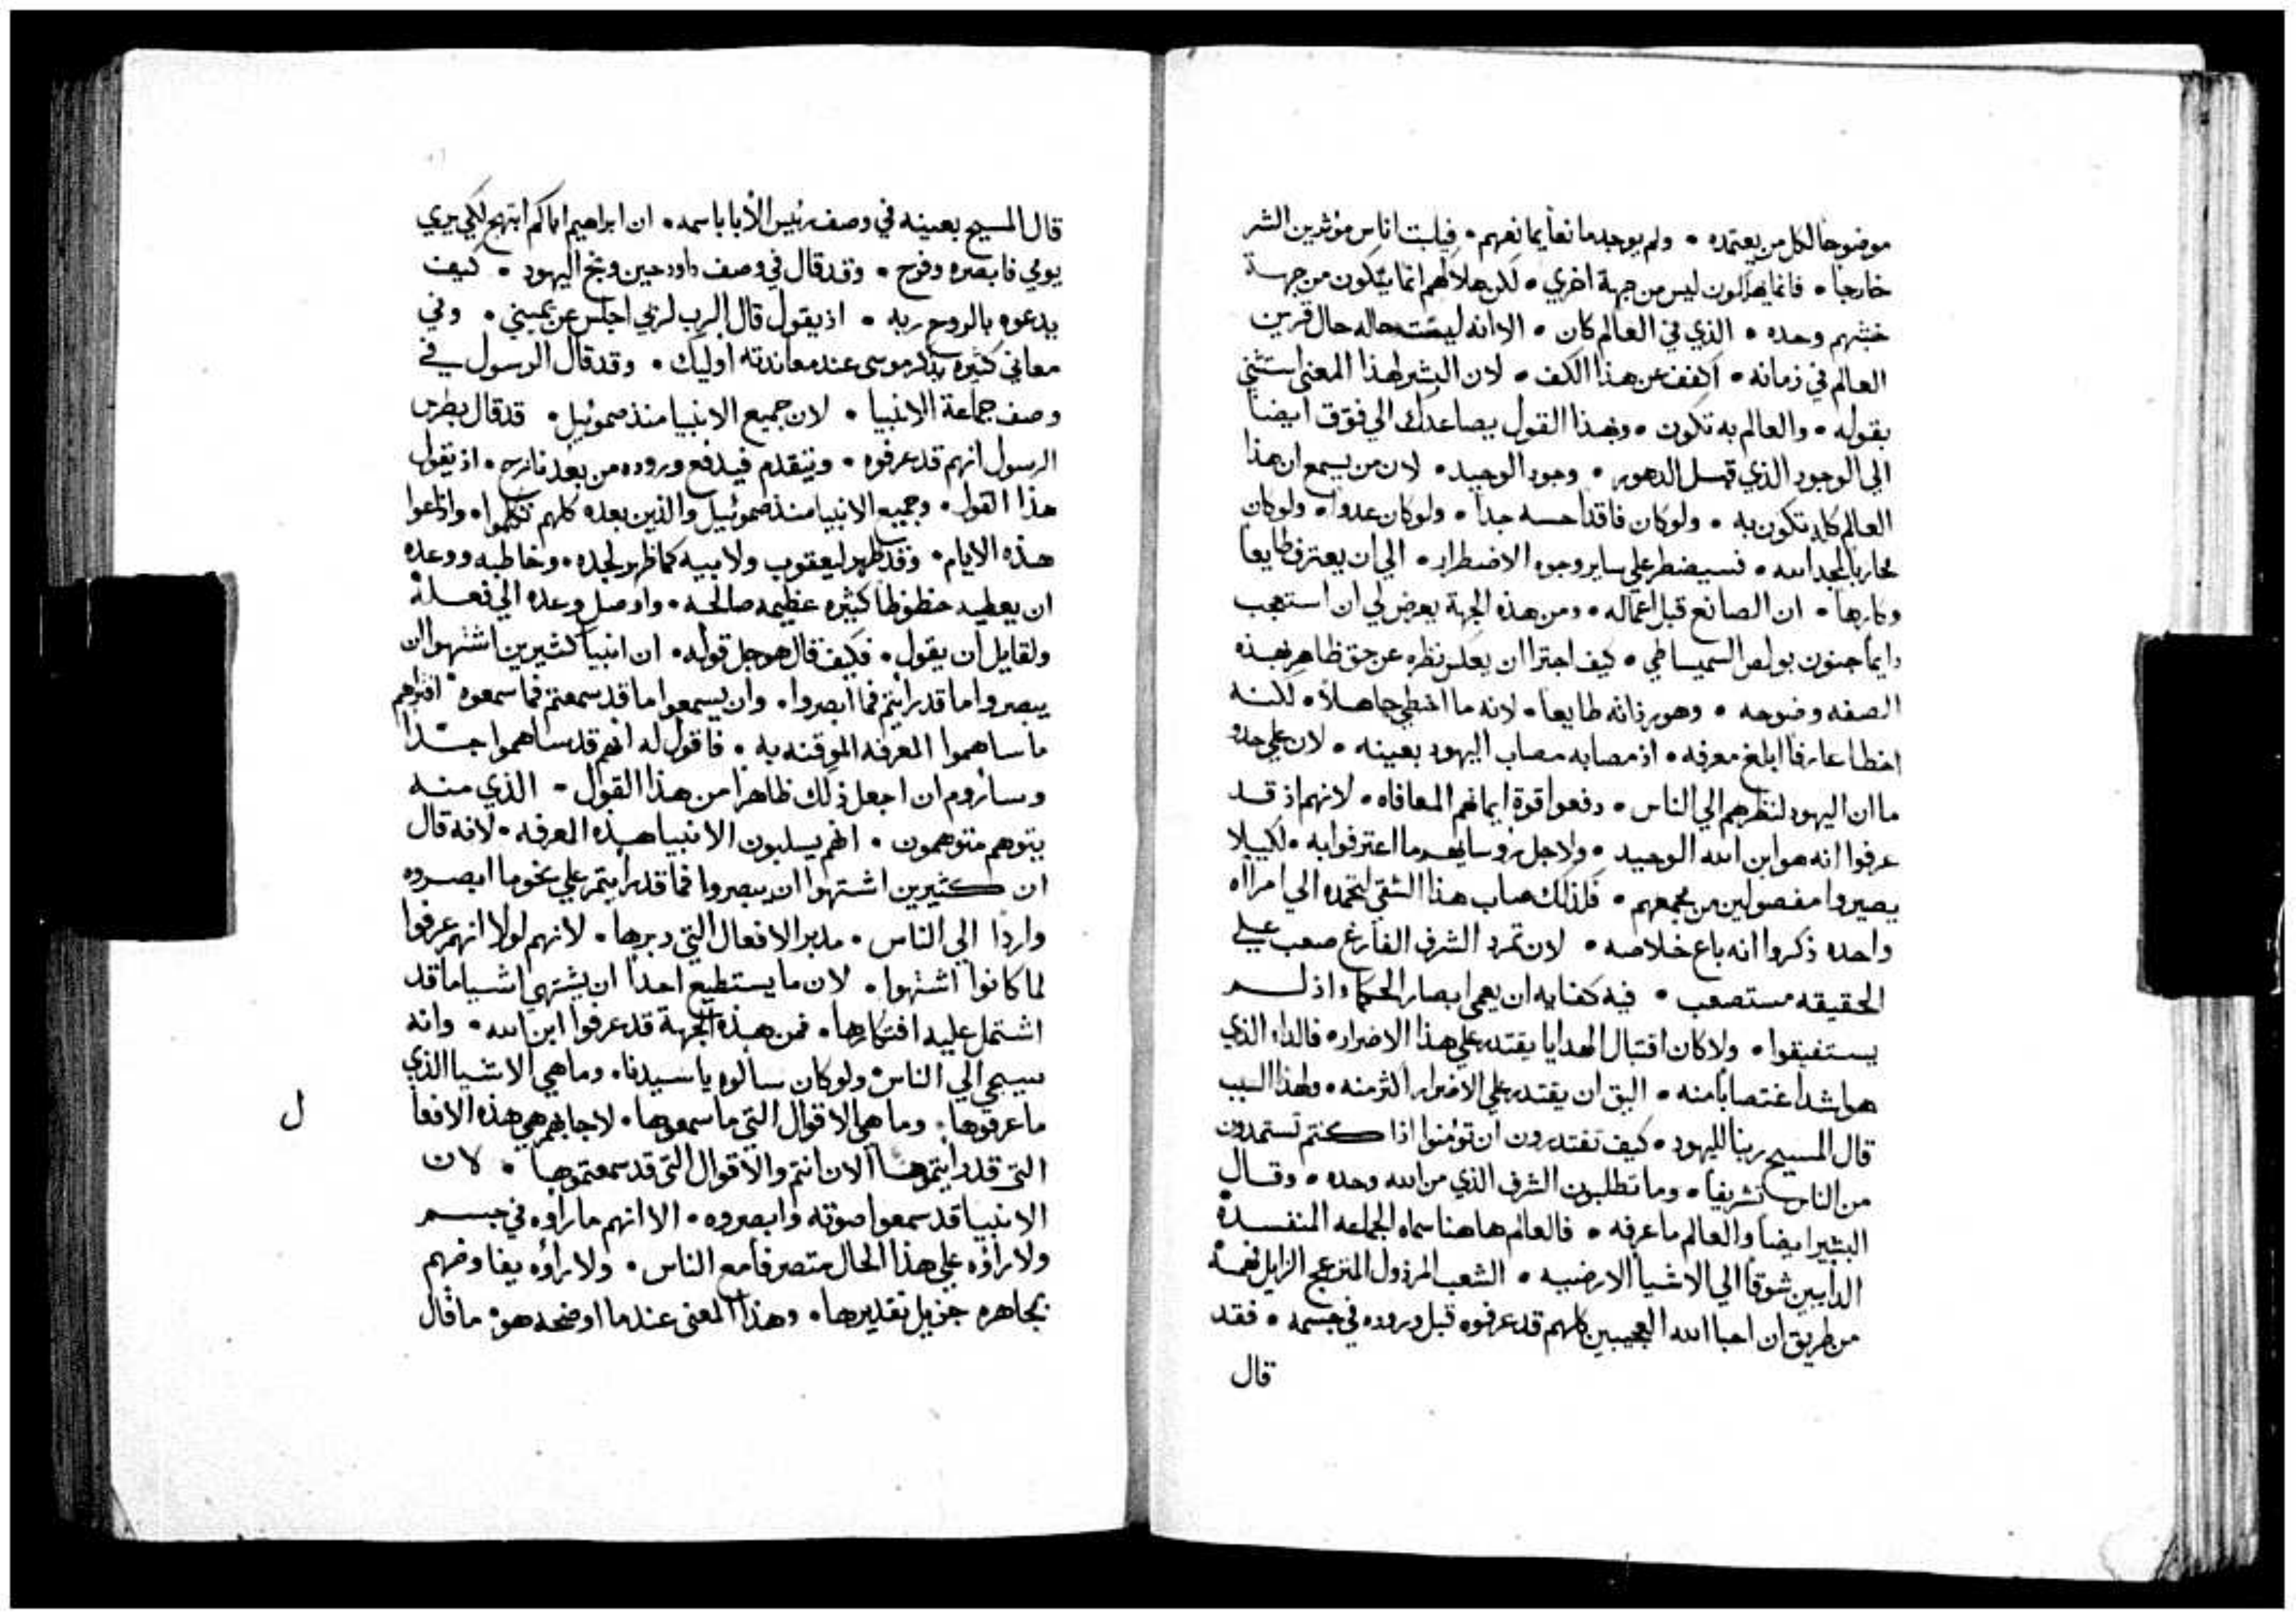 موضوعا لكل من يعتمده • ولم يوجد مانعا يمانعهم • فيلبت اناس موثرين الشر
خارجا • فانما يهلكون ليس من جهة اخري • لكن هلاكهم انما يتكون من جهة
خبثهم وحده • الذي في العالم كان • الا انه ليست حاله حال قرين
العالم في زمانه • اكفف عن هذا الكف • لان البشير لهذا المعنى استثني
بقوله • والعالم به تكون • وبهذا القول يصاعدك الي فوق ايضا
الي الوجود الذي قبل الدهور • وجود الوحيد • لان من يسمع ان هذا
العالم كله تكون به • ولو كان فاقدا حسه جدا • ولو كان عدوا • ولو كان
محاربا لمجد الله • فسيضطر علي ساير وجوه الاضطرار • الي ان يعترف طايعا
وكارها • ان الصانع قبل اعماله • ومن هذه الجهة يعرض لي ان استعجب
دايما جنون بولص السميساطي • كيف اجترا ان يعكس نظره عن حق ظاهر بهذه
الصفه وضوحه • وهور ذاته طايعا • لانه ما اخطي جاهلا • لكنه
اخطا عارفا ابلغ معرفه • اذ مصابه مصاب اليهود بعينه • لان علي حذو
ما ان اليهود لنظرهم الي الناس • دفعوا قوة ايمانهم المعافاه • لانهم اذ قد
عرفوا انه هو ابن الله الوحيد • ولاجل روسايهم ما اعترفوا به • لكيلا
يصيروا مفصولين من مجمعهم • فلذلك صاب هذا الشقي لتحمده الي امراه
واحده ذكروا انه باع خلاصه • لان تمرد الشرف الفارغ صعب علي
الحقيقه مستصعب • فيه كفايه ان يعمى ابصار الحكما اذ لم
يستفيقوا • ولا كان اقتبال الهدايا يقتدر علي هذا الاضرار • فالداء الذي
هو اشد اغتصابا منه • اليق ان يقتدر علي الاضرار اكثر منه • ولهذا السبب
قال المسيح ربنا لليهود • كيف تقتدرون ان تومنوا اذا كنتم تستمدون
من الناس تشريفا • وما تطلبون الشرف الذي من الله وحده • وقال
البشير ايضا والعالم ما عرفه • فالعالم هاهنا سماه الجماعه المنفسدة
الدايبين شوقا الي الاشيا الارضيه • الشعب المرذول المنزعج الزايل فهمه
من طريق ان احبا الله العجيبين كلهم قد عرفوه قبل وروده في جسمه • فقد
قال
قال المسيح بعينه في وصف رئيس الأبا باسمه • ان ابراهيم اباكم ابتهج لكي يري
يومي فابصره وفرح • وقد قال في وصف داود حين وبخ اليهود • كيف
يدعوه بالروح ربه • اذ يقول قال الرب لربي اجلس عن يميني • وفي
معاني كثيره يذكر موسى عند معاندته اوليك • وقد قال الرسول في
وصف جماعة الانبيا • لان جميع الانبيا منذ صموئيل • قد قال بطرس
الرسول انهم قد عرفوه • ويتقدم فيدفع وروده من بعد نازح • اذ يقول
هذا القول • وجميع الانبيا منذ صموئيل والذين بعده كلهم تكلموا • واذاعوا
هذه الايام • وقد ظهر ليعقوب ولابيه كما ظهر لجده • وخاطبه ووعده
ان يعطيه حظوظا كثيره عظيمه صالحه • واوصل وعده الي فعله
ولقايل ان يقول • فكيف قال هو جل قوله • ان انبيا كثيرين اشتهوا ان
يبصروا ما قد رايتم فما ابصروا • وان يسمعوا ما قد سمعتم فما سمعوه • افتراهم
ما ساهموا المعرفه الموقنه به • فاقول له انهم قد ساهموا جدا
وساروم ان اجعل ذلك ظاهرا من هذا القول • الذي منه
يتوهم متوهمون • انهم يسلبون الانبيا هذه المعرفه • لانه قال
ان كثيرين اشتهوا ان يبصروا فما قد رايتم علي نحو ما ابصروه
واردا الي الناس • مدبر الافعال التي دبرها • لانهم لولا انهم عرفوا
لما كانوا اشتهوا • لان ما يستطيع احدا ان يشتهي اشيا ما قد
اشتمل عليه افتكارها • فمن هذه الجهة قد عرفوا ابن الله • وانه
سيجي الي الناس • ولو كان سالوه يا سيدنا • وما هي الاشيا الذي
ما عرفوها • وما هي الاقوال التي ما سمعوها • لاجابهم هي هذه الافعا
ل
التي قد رايتموها الان انتم والاقوال التي قد سمعتموها • لان
الانبيا قد سمعوا صوته وابصروه • الا انهم ما راوه في جسم
ولا راؤه علي هذا الحال متصرفا مع الناس • ولا راؤه يفاوضهم
بجاهره جزيل تقديرها • وهذا المعنى عندما اوضحه هو • ما قال